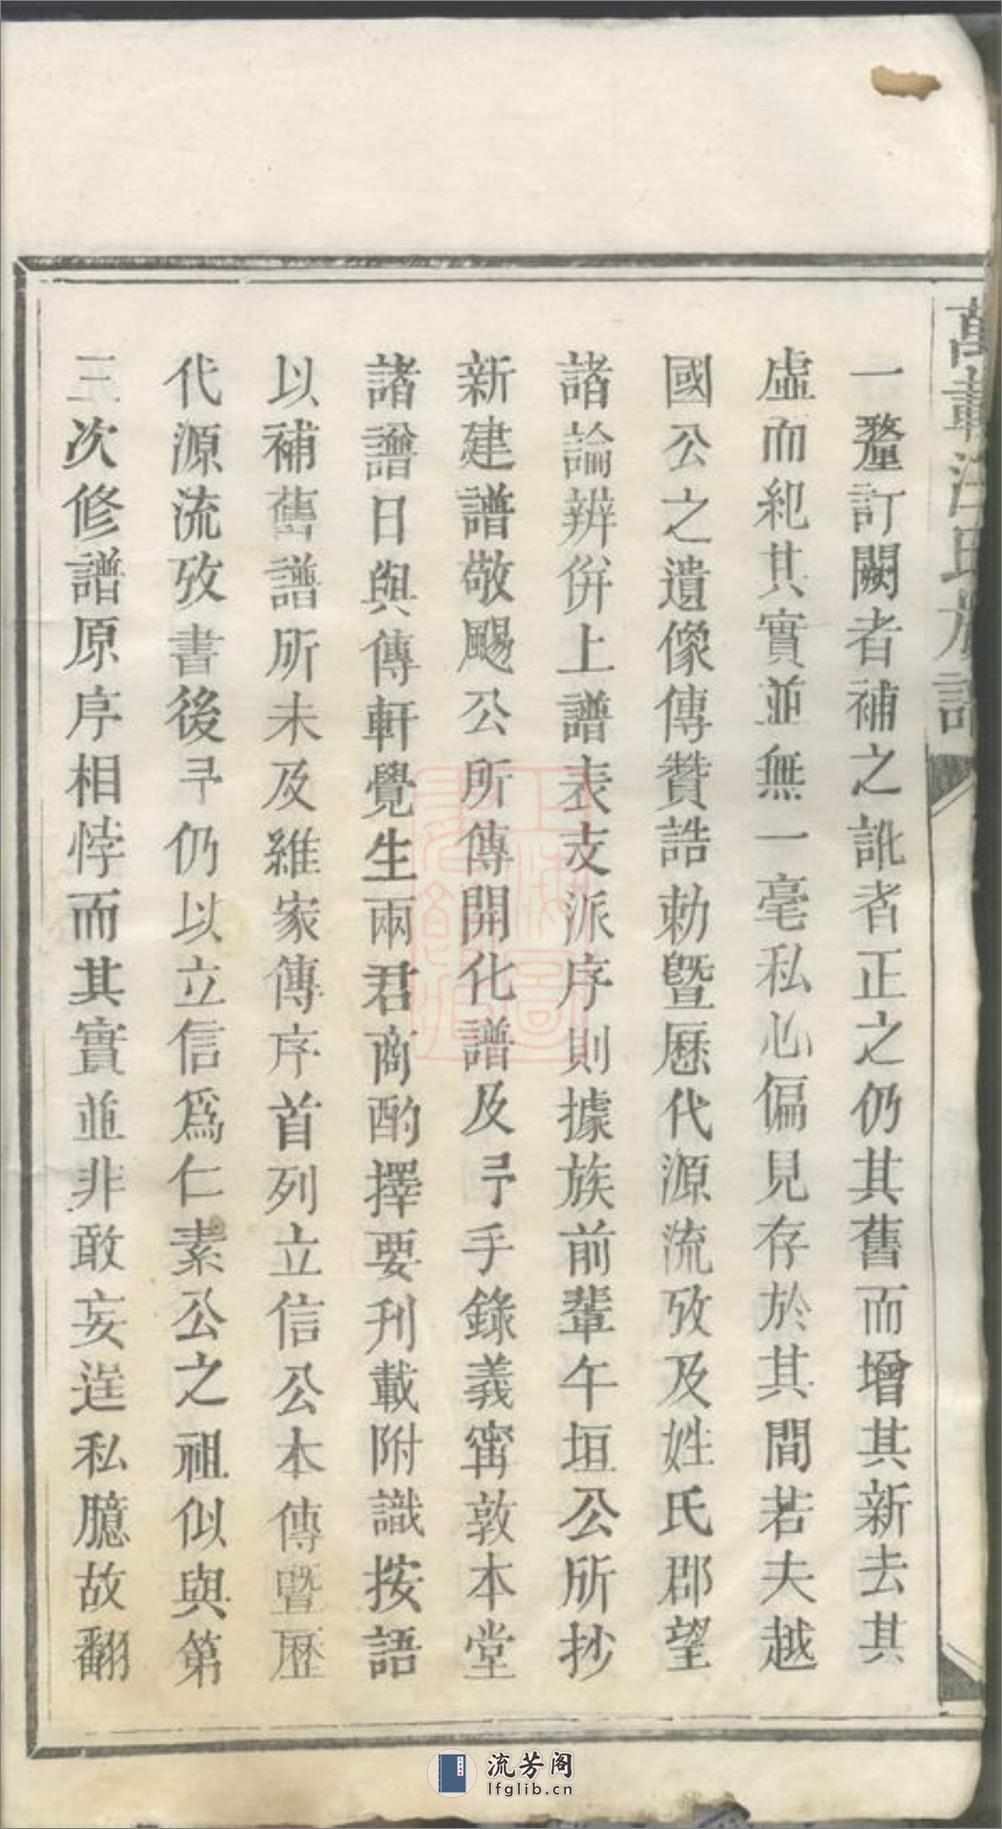 萬載汪氏族譜
一釐訂闕者補之訛者正之仍其舊而增其新去其
虛而紀其實並無一毫私心偏見存於其間若夫越
國公之遺像傳贊誥勅曁歷代源流攷及姓氏郡望
諸論辨併上譜表支派序則據族前輩午垣公所抄
新建譜敬颺公所傳開化譜及予手錄義寗敦本堂
諸譜日與傳軒覺生兩君商酌擇要刋載附識按語
以補舊譜所未及維家傳序首列立信公本傳曁歷
代源流攷書後予仍以立信爲仁素公之祖似與第
三次修譜原序相悖而其實並非敢妄逞私臆故翻
上海圖書館藏
流芳阁
lfglib.cn